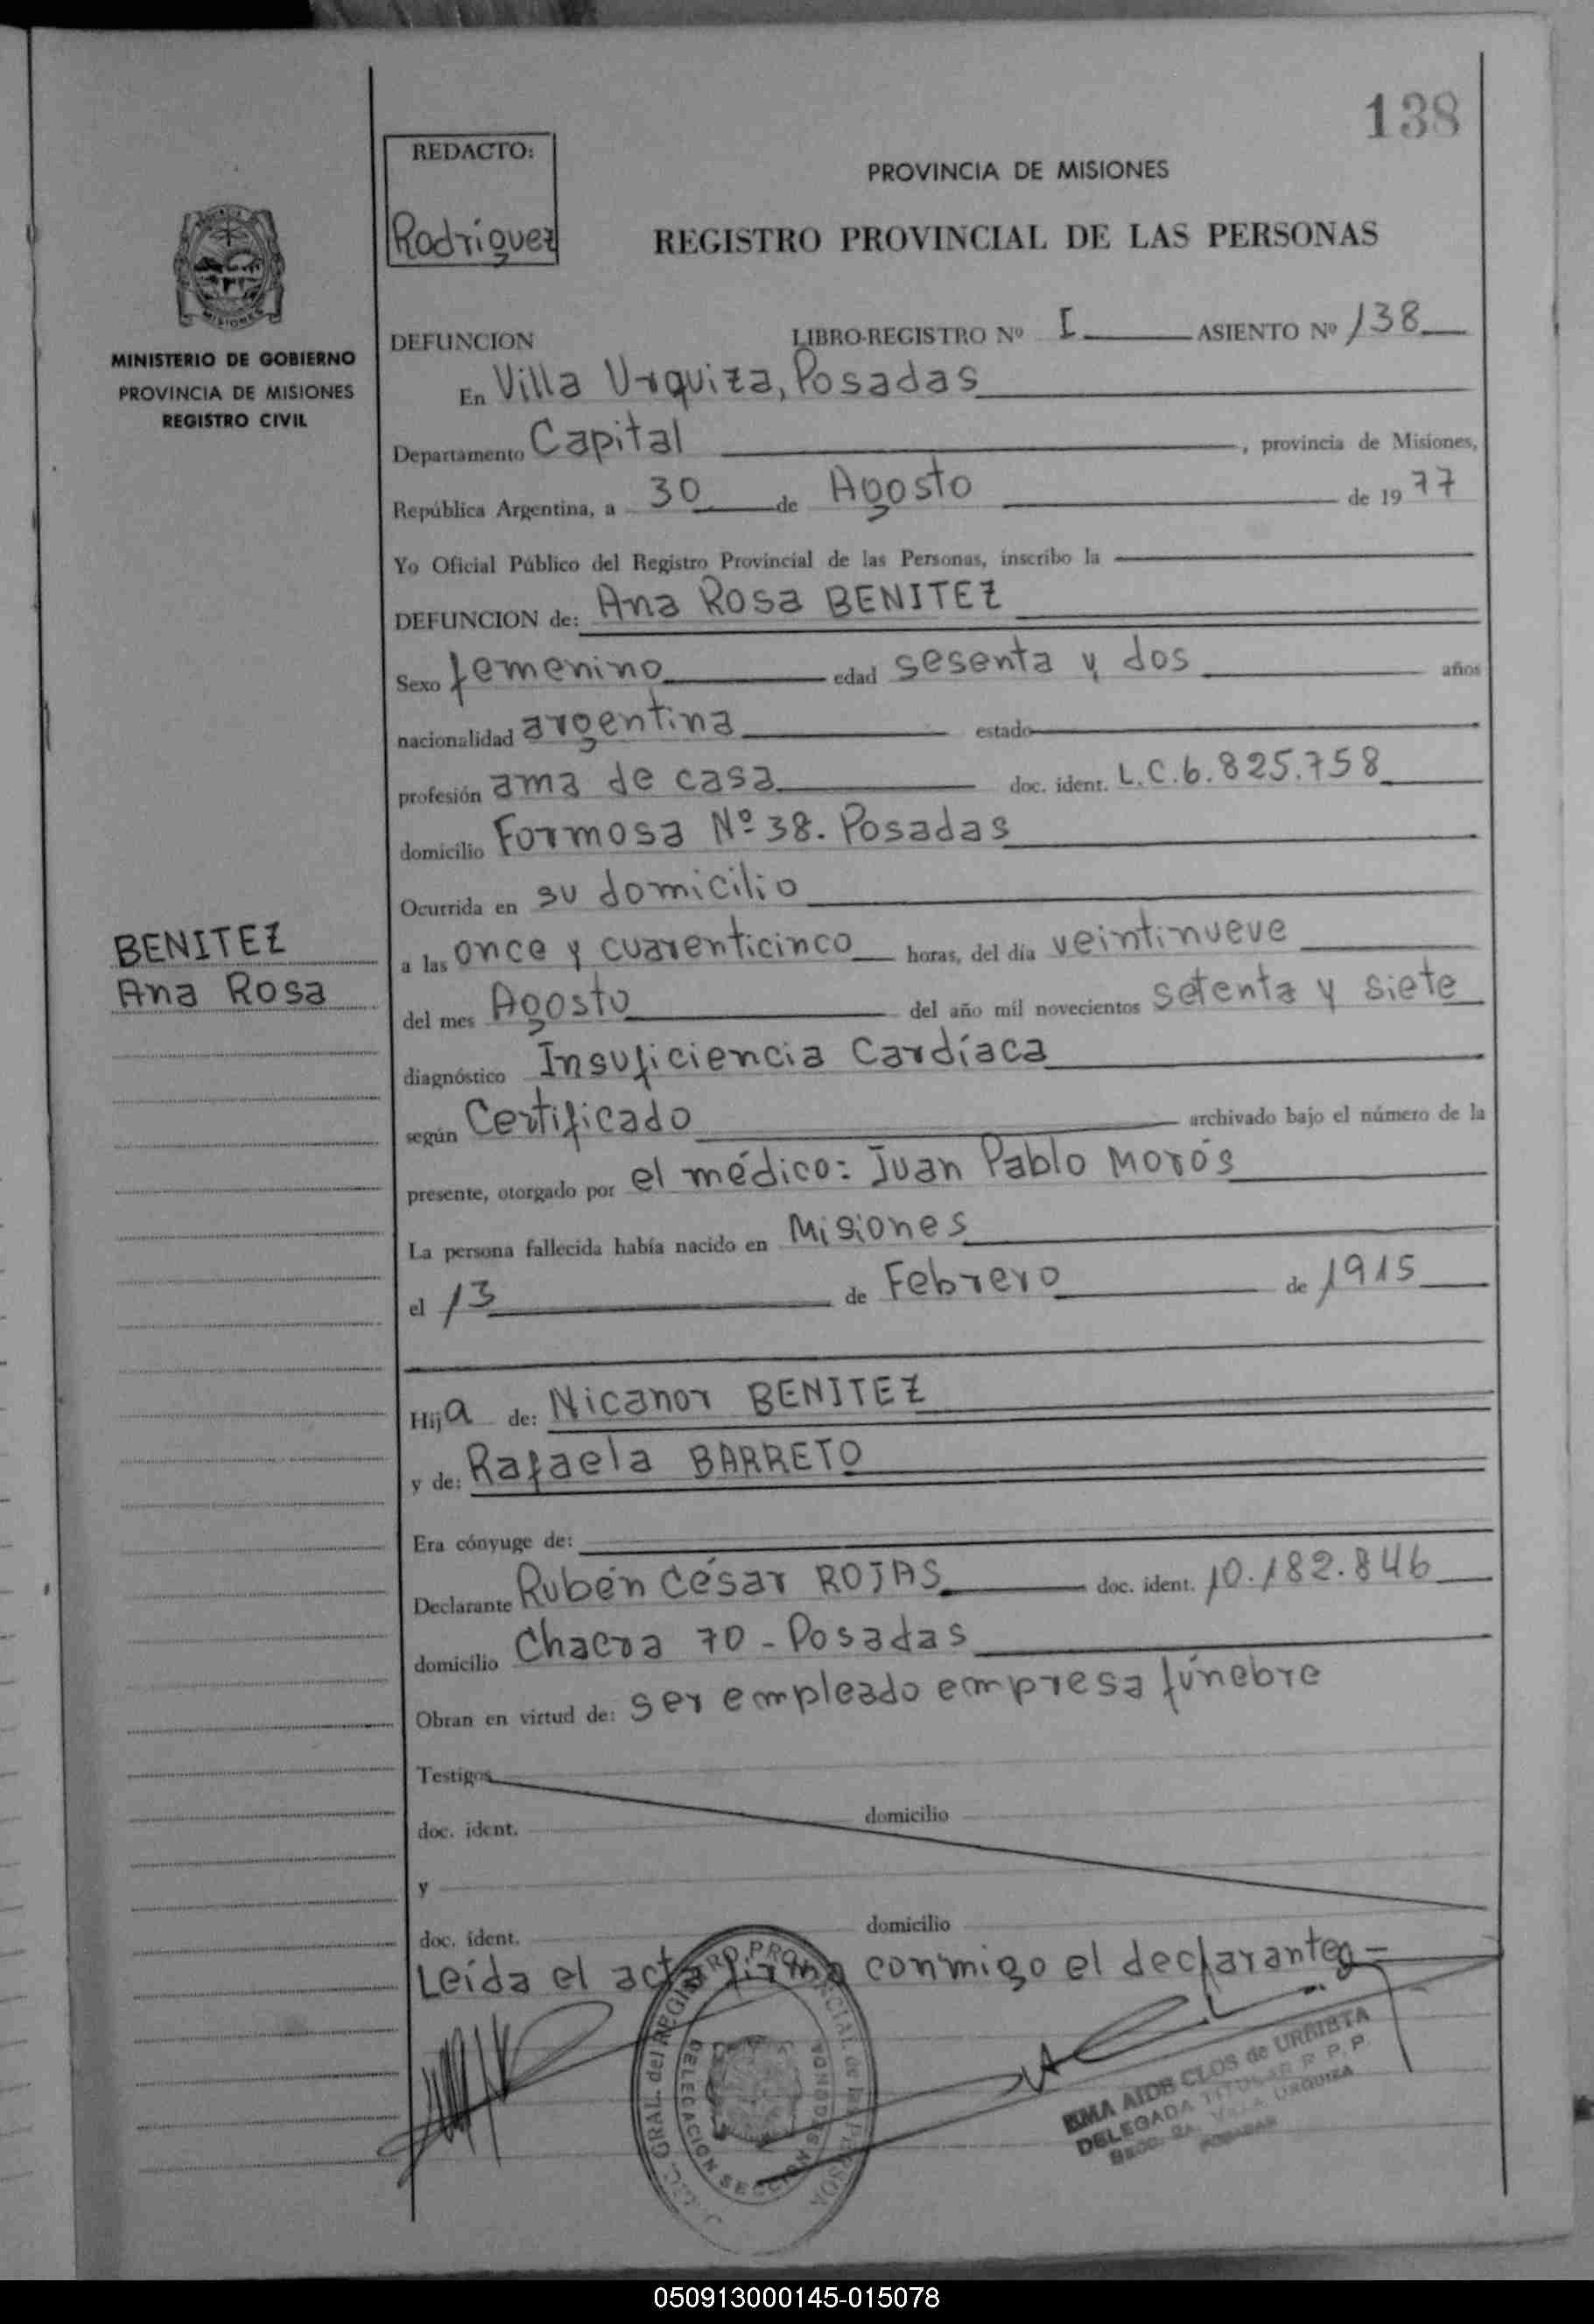 138
REDACTO:
Rodríguez
PROVINCIA DE MISIONES
REGISTRO PROVINCIAL DE LAS PERSONAS
MINISTERIO DE GOBIERNO
PROVINCIA DE MISIONES
REGISTRO CIVIL
DEFUNCION LIBRO-REGISTRO Nº I ASIENTO Nº 138
En Villa Urquiza, Posadas
Departamento Capital, provincia de Misiones,
República Argentina, a 30 de Agosto de 1977
Yo Oficial Público del Registro Provincial de las Personas, inscribo la
DEFUNCION de: Ana Rosa BENITEZ
Sexo femenino edad sesenta y dos años
nacionalidad argentina estado
profesión ama de casa doc. ident. L.C.6.825.758
domicilio Formosa Nº 38. Posadas
Ocurrida en su domicilio
BENITEZ
Ana Rosa
a las once y cuarenticinco horas, del día veintinueve
del mes Agosto del año mil novecientos setenta y siete
diagnóstico Insuficiencia Cardíaca
según Certificado archivado bajo el número de la
presente, otorgado por el médico: Juan Pablo Morós
La persona fallecida había nacido en Misiones
el 13 de Febrero de 1915
Hija de: Nicanor BENITEZ
y de: Rafaela BARRETO
Era cónyuge de:
Declarante Rubén César ROJAS doc. ident. 10.182.846
domicilio Chacra 70 - Posadas
Obran en virtud de: ser empleado empresa fúnebre
Testigos
doc. ident. domicilio
y
doc. ident. domicilio
Leída el acta firma conmigo el declarante
GRAL. del REGISTRO PROVINCIAL de las PERSONAS
DELEGACION SECCION POSADAS
EMA AIDE CLOS de URBIETA
DELEGADA TITULAR R.P.P.
SECC. 2A. VILLA URQUIZA
POSADAS
050913000145-015078